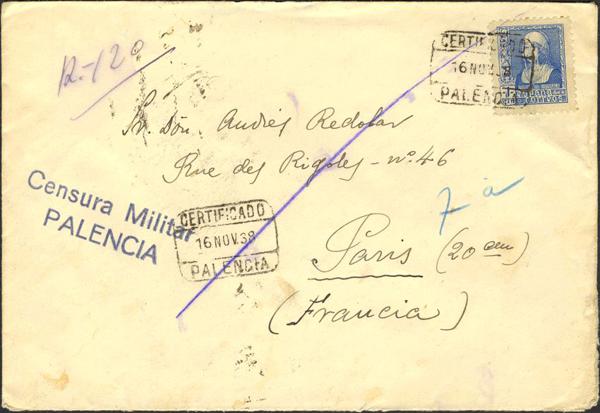 R-120
CERTIFICADO
16 NOV. 38
PALENCIA
Sr. Dón. Andrés Redolar
Rue des Rigoles - nº 46
7 a
Censura Militar
PALENCIA
CERTIFICADO
16 NOV. 38
PALENCIA
Paris (20 em)
(Francia)